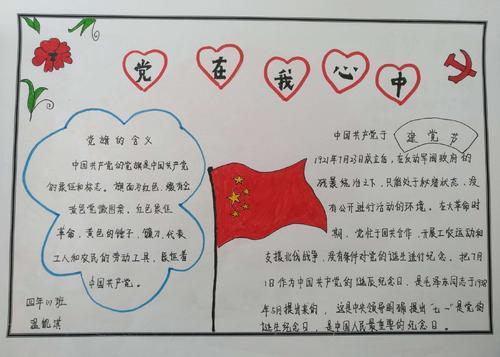 党在我心中
党旗的含义
中国共产党的党旗是中国共产党
的象征和标志。旗面为红色,缀有金
黄色党徽图案。红色象征
革命,黄色的锤子、镰刀,代表
工人和农民的劳动工具,象征着
中国共产党。
四年(1)班
建党节
中国共产党于
1921年7月23日成立后,在反动军阀政府的
残暴统治之下,只能处于秘密状态,没
有公开进行活动的环境。在大革命时
期,党忙于国共合作、开展工农运动和
支援北伐战争,没有条件对党的诞生进行纪念。把7月
1日作为中国共产党的诞辰纪念日,是毛泽东同志于1938
年5月提出来的,这是中央领导明确提出“七一”是党的
诞生纪念日,是中国人民最重要的纪念日。